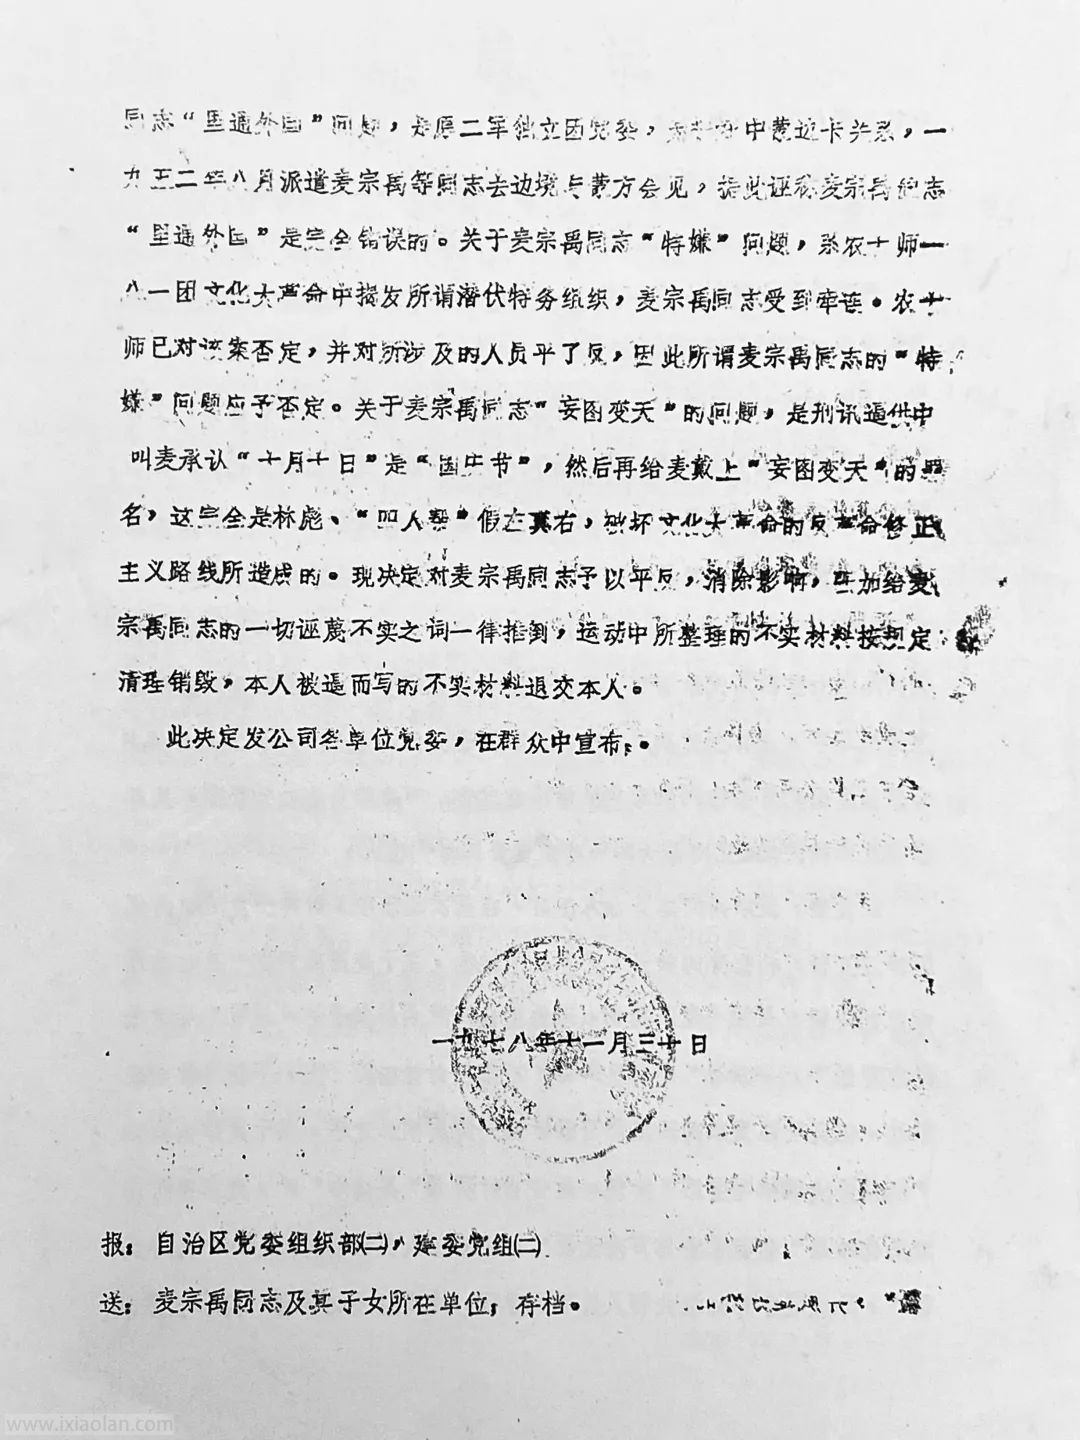 同志“里通外国”问题，是原二军独立团党委，为搞好中蒙边卡关系，一
九五二年八月派遣麦宗禹等同志去边境与蒙方会见，据此诬称麦宗禹同志
“里通外国”是完全错误的。关于麦宗禹同志“特嫌”问题，系农十师一
八一团文化大革命中揭发所谓潜伏特务组织，麦宗禹同志受到牵连。农十
师已对该案否定，并对所涉及的人员平了反，因此所谓麦宗禹同志的“特
嫌”问题应予否定。关于麦宗禹同志“妄图变天”的问题，是刑讯逼供中
叫麦承认“十月十日”是“国庆节”，然后再给麦戴上“妄图变天”的罪
名，这完全是林彪、“四人帮”假左真右，破坏文化大革命的反革命修正
主义路线所造成的。现决定对麦宗禹同志予以平反，消除影响，强加给麦
宗禹同志的一切诬蔑不实之词一律推倒，运动中所整理的不实材料按规定
清理销毁，本人被逼而写的不实材料退交本人。
此决定发公司各单位党委，在群众中宣布。
一九七八年十一月三十日
报：自治区党委组织部㈡，建委党组㈡
送：麦宗禹同志及其子女所在单位；存档。
www.ixiaolan.com